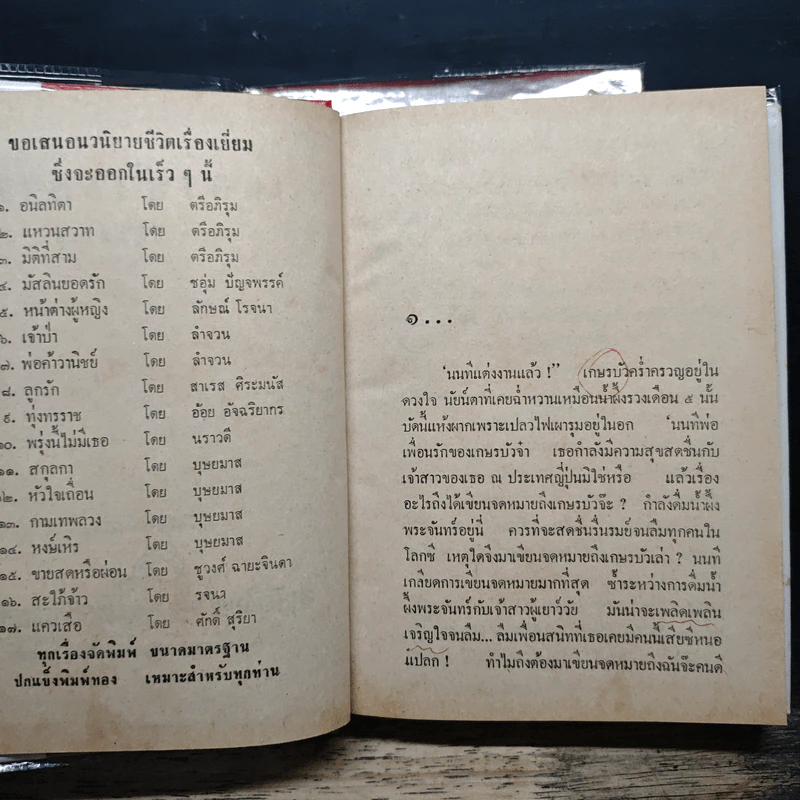 ขอเสนอนวนิยายชีวิตเรื่องเยี่ยม
ซึ่งจะออกในเร็ว ๆ นี้
๑. อนิลทิตา โดย ตรีอภิรุม
๒. แหวนสวาท โดย ตรีอภิรุม
๓. มิติที่สาม โดย ตรีอภิรุม
๔. มัสลินยอดรัก โดย ชอุ่ม ปัญจพรรค์
๕. หน้าต่างผู้หญิง โดย ลักษณ์ โรจนา
๖. เจ้าป่า โดย ลำจวน
๗. พ่อค้าวานิชย์ โดย ลำจวน
๘. ลูกรัก โดย สาเรส ศิระมนัส
๙. ทุ่งทรราช โดย อ้อย อัจฉริยากร
๑๐. พรุ่งนี้ไม่มีเธอ โดย นราวดี
๑๑. สกุลกา โดย บุษยมาส
๑๒. หัวใจเถื่อน โดย บุษยมาส
๑๓. กามเทพลวง โดย บุษยมาส
๑๔. หงษ์เหิร โดย บุษยมาส
๑๕. ขายสดหรือผ่อน โดย ชูวงศ์ ฉายะจินดา
๑๖. สะใภ้จ้าว โดย รจนา
๑๗. แควเสือ โดย ศักดิ์ สุริยา
ทุกเรื่องจัดพิมพ์ ขนาดมาตรฐาน
ปกแข็งพิมพ์ทอง เหมาะสำหรับทุกท่าน
๑...
'นนทีแต่งงานแล้ว !" เกษรบัวคร่ำครวญอยู่ใน
ดวงใจ นัยน์ตาที่เคยฉ่ำหวานเหมือนน้ำผึ้งรวงเดือน ๕ นั้น
บัดนี้แห้งผากเพราะเปลวไฟเผารุมอยู่ในอก 'นนทีพ่อ
เพื่อนรักของเกษรบัวจ๋า เธอกำลังมีความสุขสดชื่นกับ
เจ้าสาวของเธอ ณ ประเทศญี่ปุ่นมิใช่หรือ แล้วเรื่อง
อะไรถึงได้เขียนจดหมายถึงเกษรบัวจ๊ะ ? กำลังดื่มน้ำผึ้ง
พระจันทร์อยู่นี่ ควรที่จะสดชื่นรื่นรมย์จนลืมทุกคนใน
โลกซี เหตุใดจึงมาเขียนจดหมายถึงเกษรบัวเล่า ? นนที
เกลียดการเขียนจดหมายมากที่สุด ซ้ำระหว่างการดื่มน้ำ
ผึ้งพระจันทร์กับเจ้าสาวผู้เยาว์วัย มันน่าจะเพลิดเพลิน
เจริญใจจนลืม... ลืมเพื่อนสนิทที่เธอเคยมีคนนี้เสียซีหนอ
แปลก ! ทำไมถึงต้องมาเขียนจดหมายถึงฉันจ๊ะคนดี